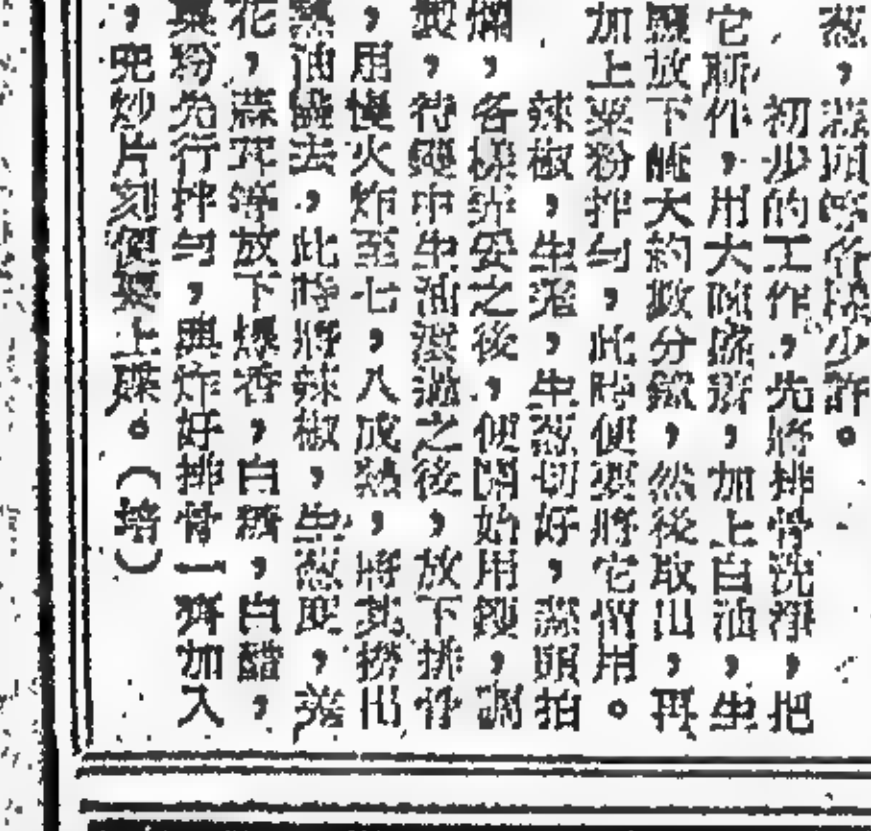 葱,蒜頭等各樣少許。
初步的工作,先將排骨洗淨,把
它斬件,用大碗盛齊,加上白油,生
放下醃大約數分鐘,然後取出,再
加上粟粉拌勻,此時便要將它候用。
辣椒,生蔥,生葱切好,蒜頭拍
爛,各樣弄妥之後,便開始用鑊,調
製,待鑊中生油滾沸之後,放下排骨
,用慢火炸至七,八成熟,將其撈出
熟油盛去,此時將辣椒,生葱段,
花,蒜茸等放下爆香,白糖,白醋,
粟粉先行拌勻,與炸好排骨一齊加入
,兜炒片刻便算上碟。(培)